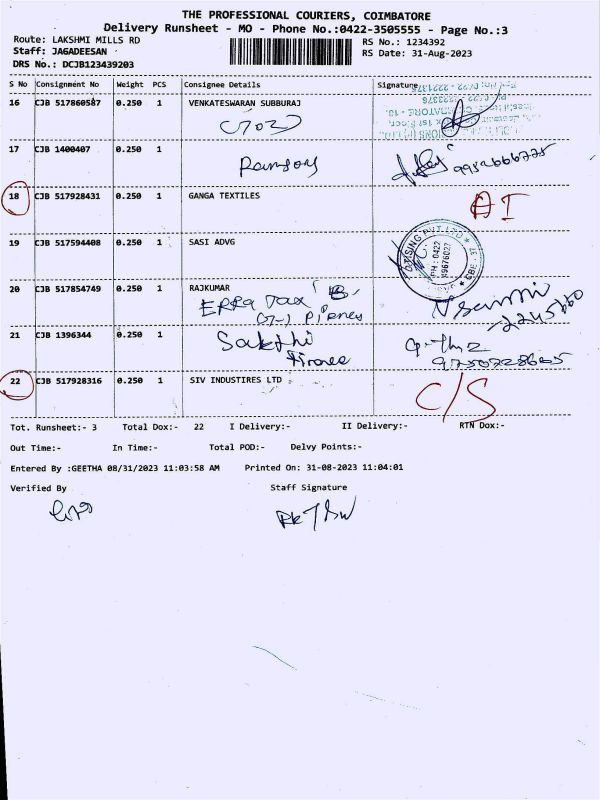 THE PROFESSIONAL COURIERS, COIMBATORE
Delivery Runsheet - MO - Phone No.:0422-3505555 - Page No.:3
Route: LAKSHMI MILLS RD
RS No.: 1234392
Staff: JAGADEESAN
RS Date: 31-Aug-2023
DRS No.: DCJB123439203
S No Consignment No Weight PCS Consignee Details Signature
16 CJB 517860587 0.250 1 VENKATESWARAN SUBBURAJ
17 CJB 1400407 0.250 1
Ramson
18 CJB 517928431 0.250 1 GANGA TEXTILES
AI
19 CJB 517594408 0.250 1 SASI ADVG
20 CJB 517854749 0.250 1 RAJKUMAR
21 CJB 1396344 0.250 1 Sakthi
22 CJB 517928316 0.250 1 SIV INDUSTIRES LTD
C/S
Tot. Runsheet:- 3 Total Dox:- 22 I Delivery:- II Delivery:- RTN Dox:-
Out Time:- In Time:- Total POD:- Delvy Points:-
Entered By :GEETHA 08/31/2023 11:03:58 AM Printed On: 31-08-2023 11:04:01
Verified By Staff Signature